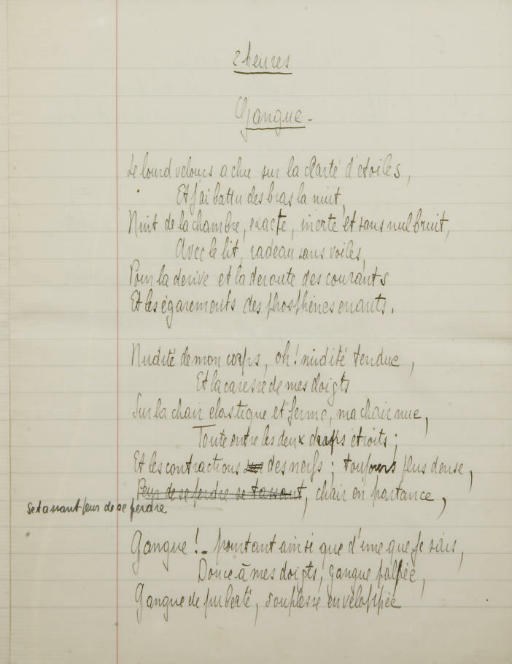 2 heures
Gangue.
Le lourd velours a chu sur la clarté d'étoiles,
Et j'ai battu des bras la nuit,
Nuit de la chambre, exacte, inerte et sans nul bruit,
Avec le lit, radeau sans voiles,
Pour la dérive et la déroute des courants
Et les égarements des phosphènes errants.
Nudité de mon corps, oh! nudité tendue,
Et la caresse de mes doigts
Sur la chair élastique et ferme, ma chair nue,
Toute entre les deux draps étroits;
Et les contractions des nerfs; toujours plus dense,
Peur de se perdre se tassant, chair en partance,
se tassant peur de se perdre
Gangue! – pourtant ainsi que d'une que je sais,
Douce à mes doigts, gangue palpée,
Gangue de puberté, souplesse enveloppée